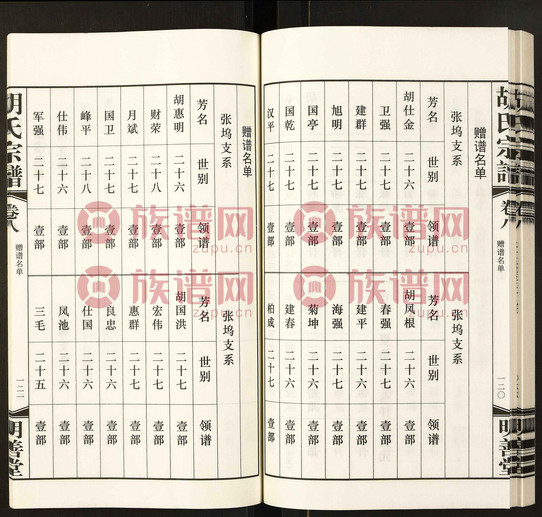 胡氏宗譜
卷八
赠谱名单
一二〇
明善堂
赠谱名单
张坞支系
芳名 世别 领谱
胡仕金 二十六 壹部
卫强 二十七 壹部
建群 二十七 壹部
旭明 二十七 壹部
国亭 二十六 壹部
国乾 二十六 壹部
汉平 二十七 壹部
张坞支系
芳名 世别 领谱
胡凤根 二十六 壹部
春强 二十七 壹部
建平 二十七 壹部
海强 二十七 壹部
菊坤 二十六 壹部
建春 二十六 壹部
柏成 二十七 壹部
张坞支系
芳名 世别 领谱
胡惠明 二十六 壹部
财荣 二十七 壹部
月斌 二十七 壹部
国卫 二十七 壹部
峰平 二十八 壹部
仕伟 二十六 壹部
军强 二十七 壹部
张坞支系
芳名 世别 领谱
胡国洪 二十七 壹部
宏伟 二十七 壹部
惠群 二十七 壹部
良忠 二十六 壹部
仕国 二十六 壹部
凤池 二十六 壹部
三毛 二十五 壹部
胡氏宗譜
卷八
赠谱名单
一二一
明善堂
族谱网
zupu.cn
族谱网
zupu.cn
族谱网
zupu.cn
族谱网
zupu.cn